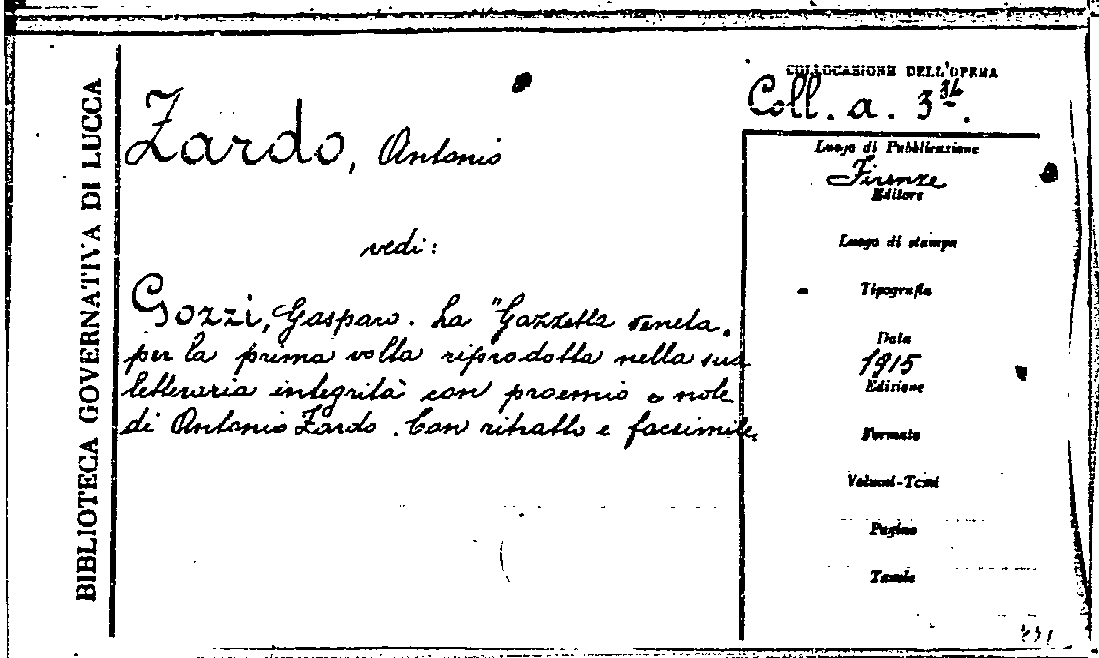 BIBLIOTECA GOVERNATIVA DI LUCCA
Zardo, Antonio
vedi:
Gozzi, Gasparo. La "Gazzetta veneta.
per la prima volta riprodotta nella sua
letteraria integrità con proemio e note
di Antonio Zardo. Con ritratto e facsimile.
COLLOCAZIONE DELL'OPERA
Coll. a. 3
Luogo di Pubblicazione
Firenze
Editore
Luogo di stampa
Tipografia
Data
1915
Edizione
Formato
Volumi-Tomi
Pagine
Tavole